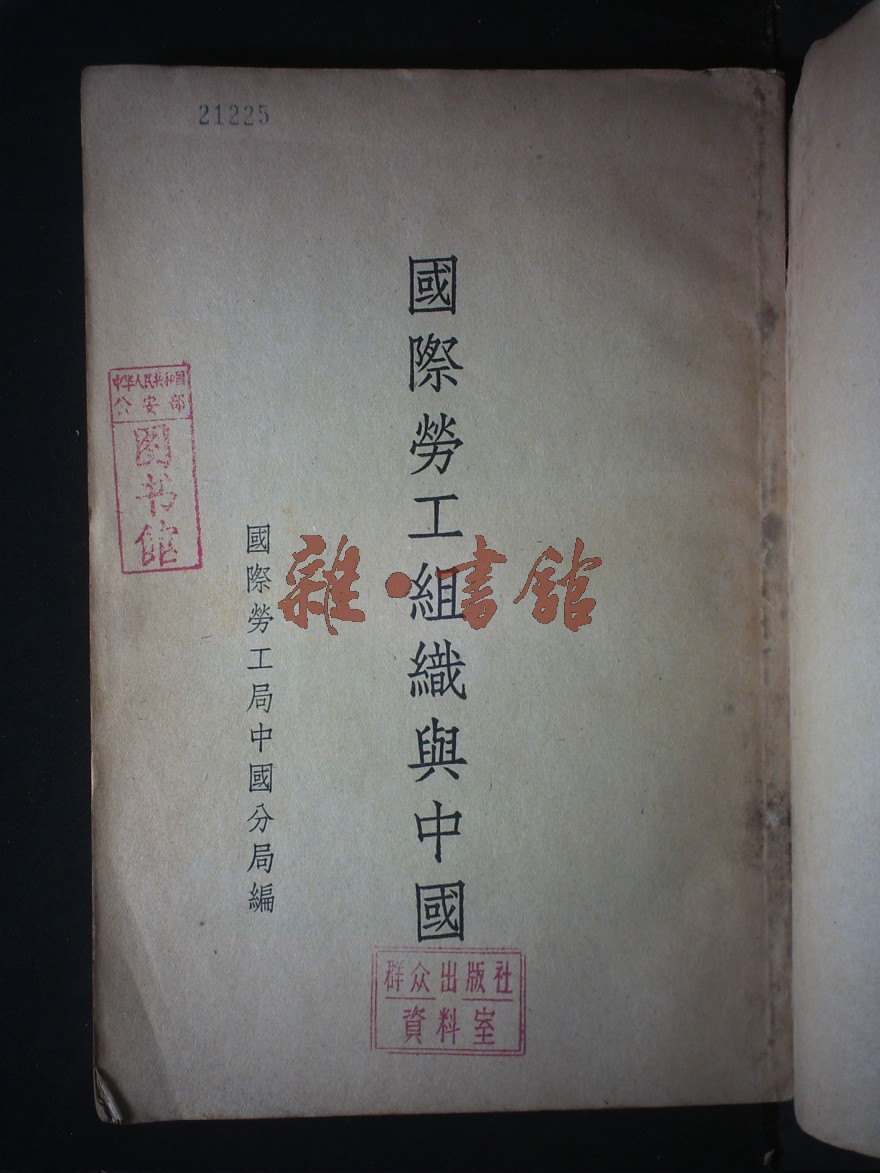 21225
國際勞工組織與中國
國際勞工局中國分局編
中华人民共和国
公安部
图书馆
雜·書館
群众出版社
資料室